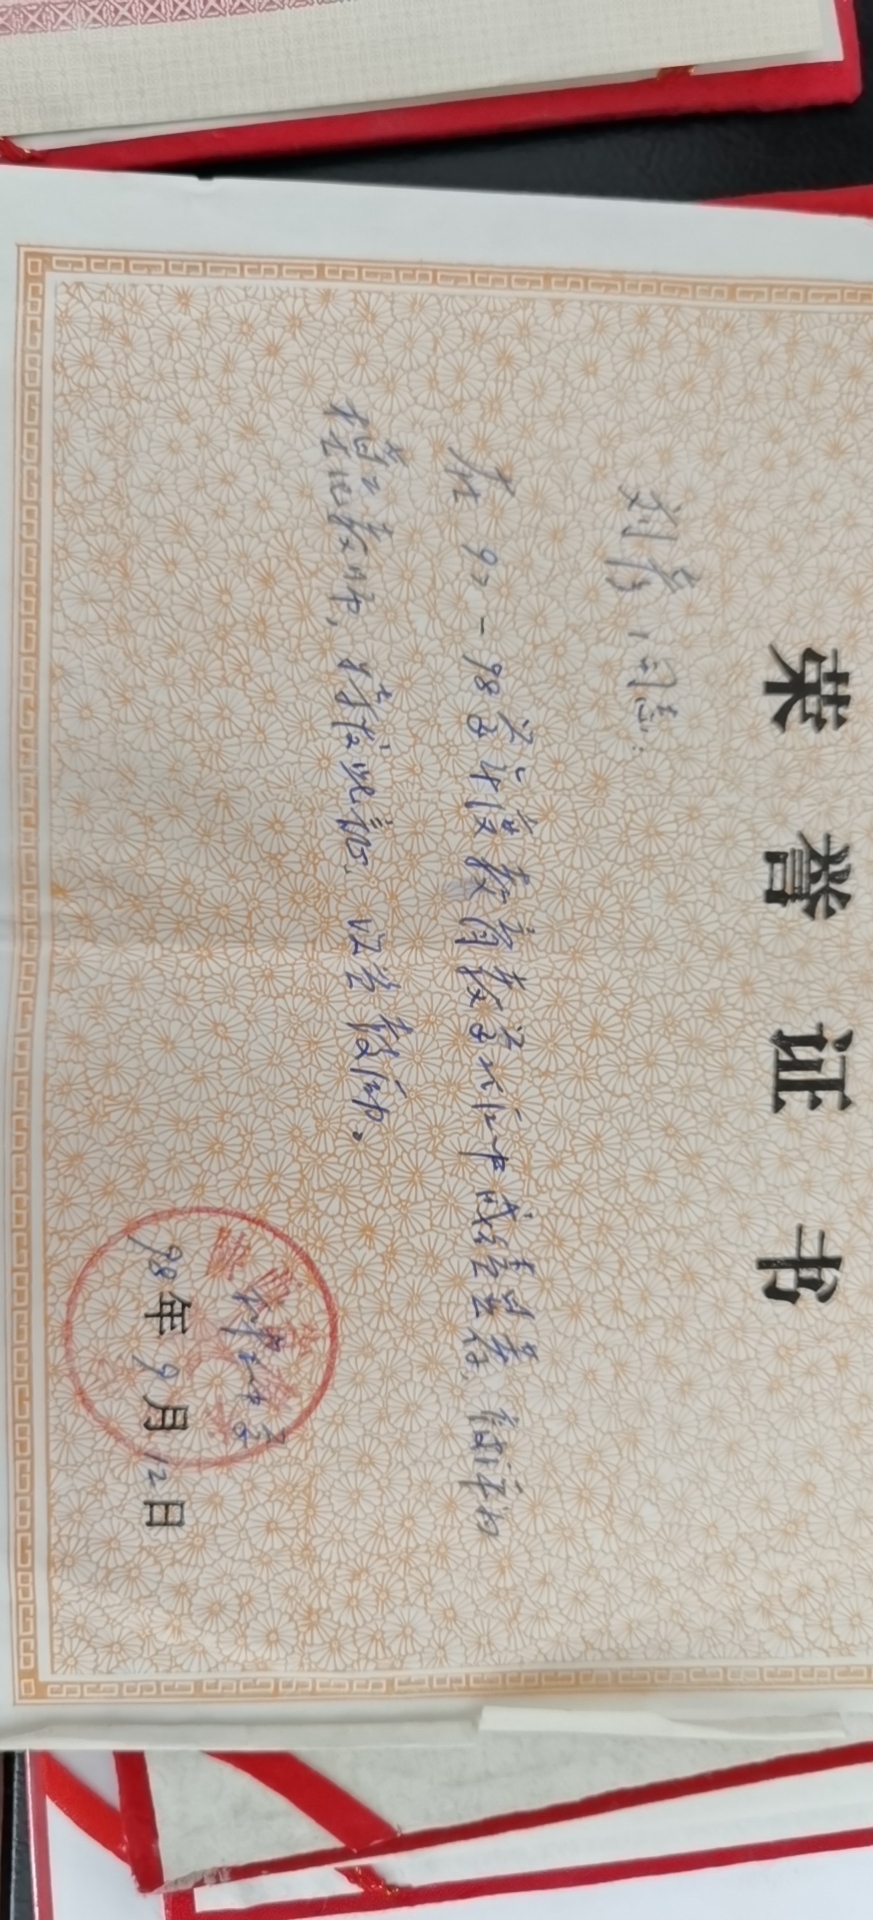 荣誉证书
刘彦同志:
在97-98学年度教育教学工作中成绩显著,被评为
模范教师,特发此证,以资鼓励。
中学
98年9月12日